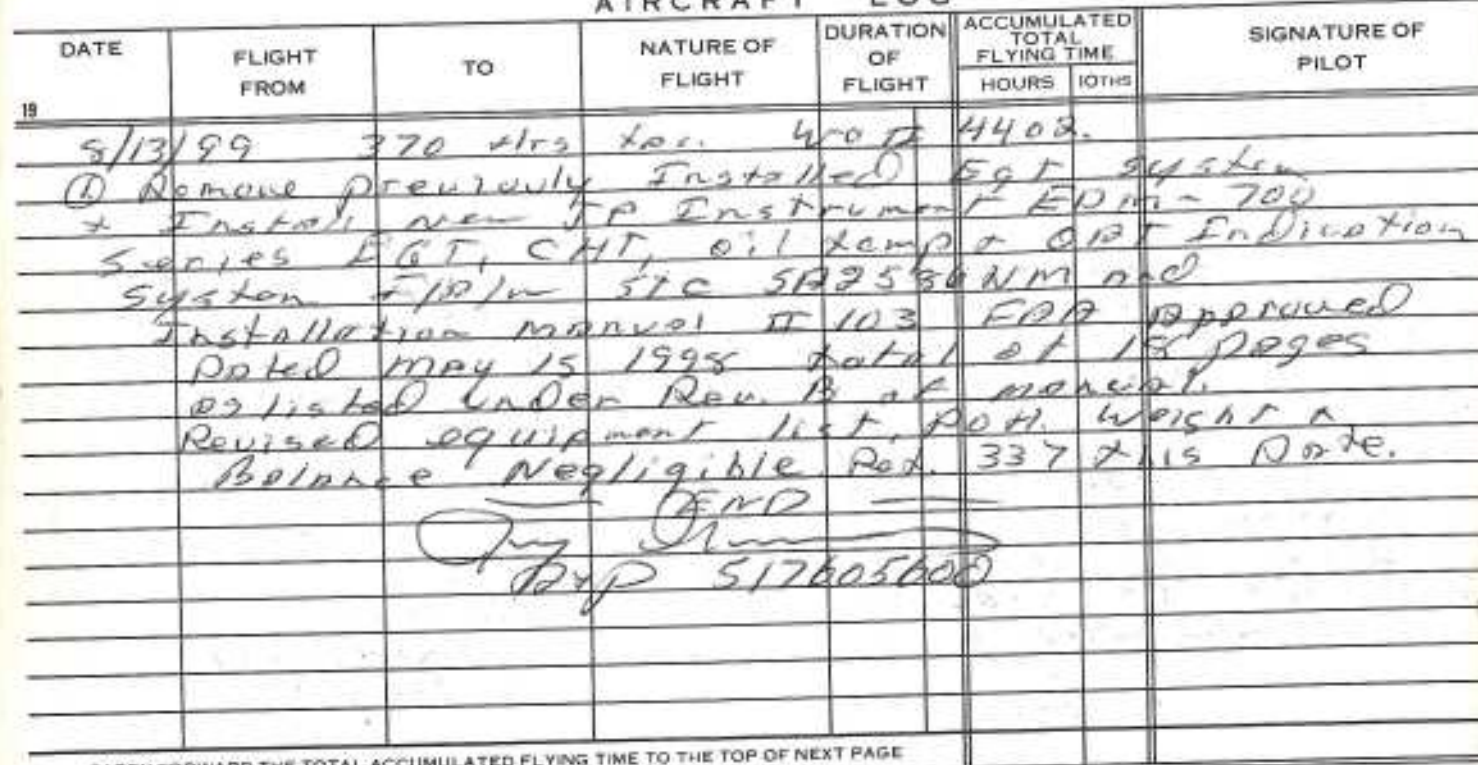 AIRCRAFT LOG
DATE
FLIGHT FROM
TO
NATURE OF FLIGHT
DURATION OF FLIGHT
ACCUMULATED TOTAL FLYING TIME
HOURS 10THS
SIGNATURE OF PILOT
19
8/13/99 370 Hrs tac. WO # 4402.
① Remove previouly Installed EGT system
+ Install New JP Instrument EDM-700
Series EGT, CHT, oil temp + OAT Indication
System I/A/W STC SA2586NM and
Installation manual # 103 FAA Approved
Dated May 15 1998 total of 18 pages
as listed under Rev. B of manual.
Revised equipment list, POH. Weight &
Balance Negligible Ref. 337 this Date.
END
A+P 517605600
CARRY FORWARD THE TOTAL ACCUMULATED FLYING TIME TO THE TOP OF NEXT PAGE